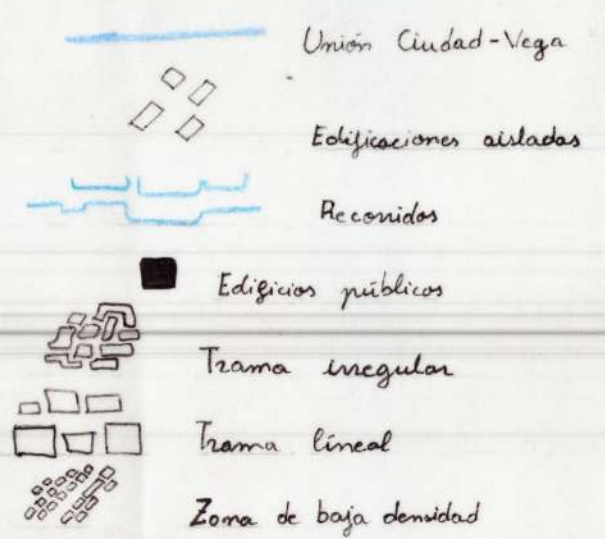 Unión Ciudad-Vega
Edificaciones aisladas
Recorridos
Edificios públicos
Trama irregular
Trama lineal
Zona de baja densidad